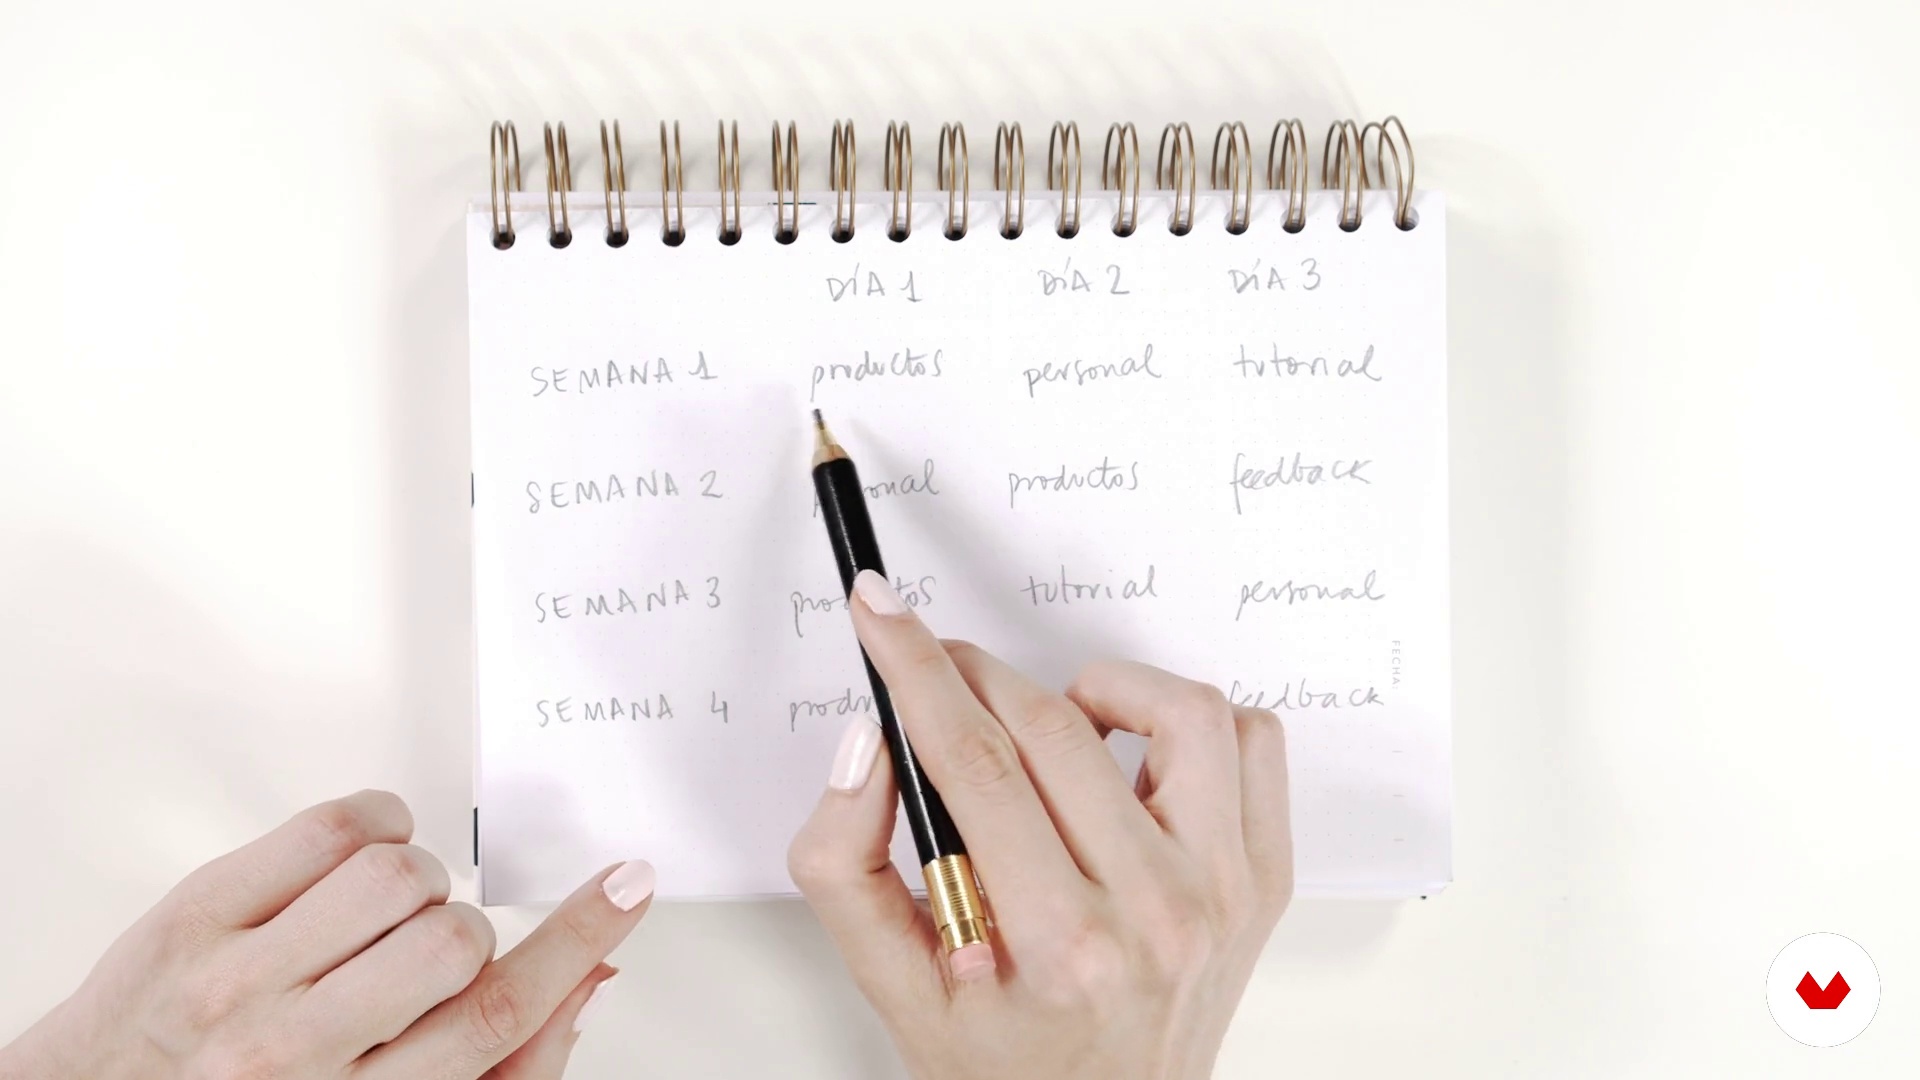 DÍA 1 DÍA 2 DÍA 3
SEMANA 1 productos personal tutorial
SEMANA 2 productos feedback
SEMANA 3 productos tutorial personal
SEMANA 4 feedback
FECHA: